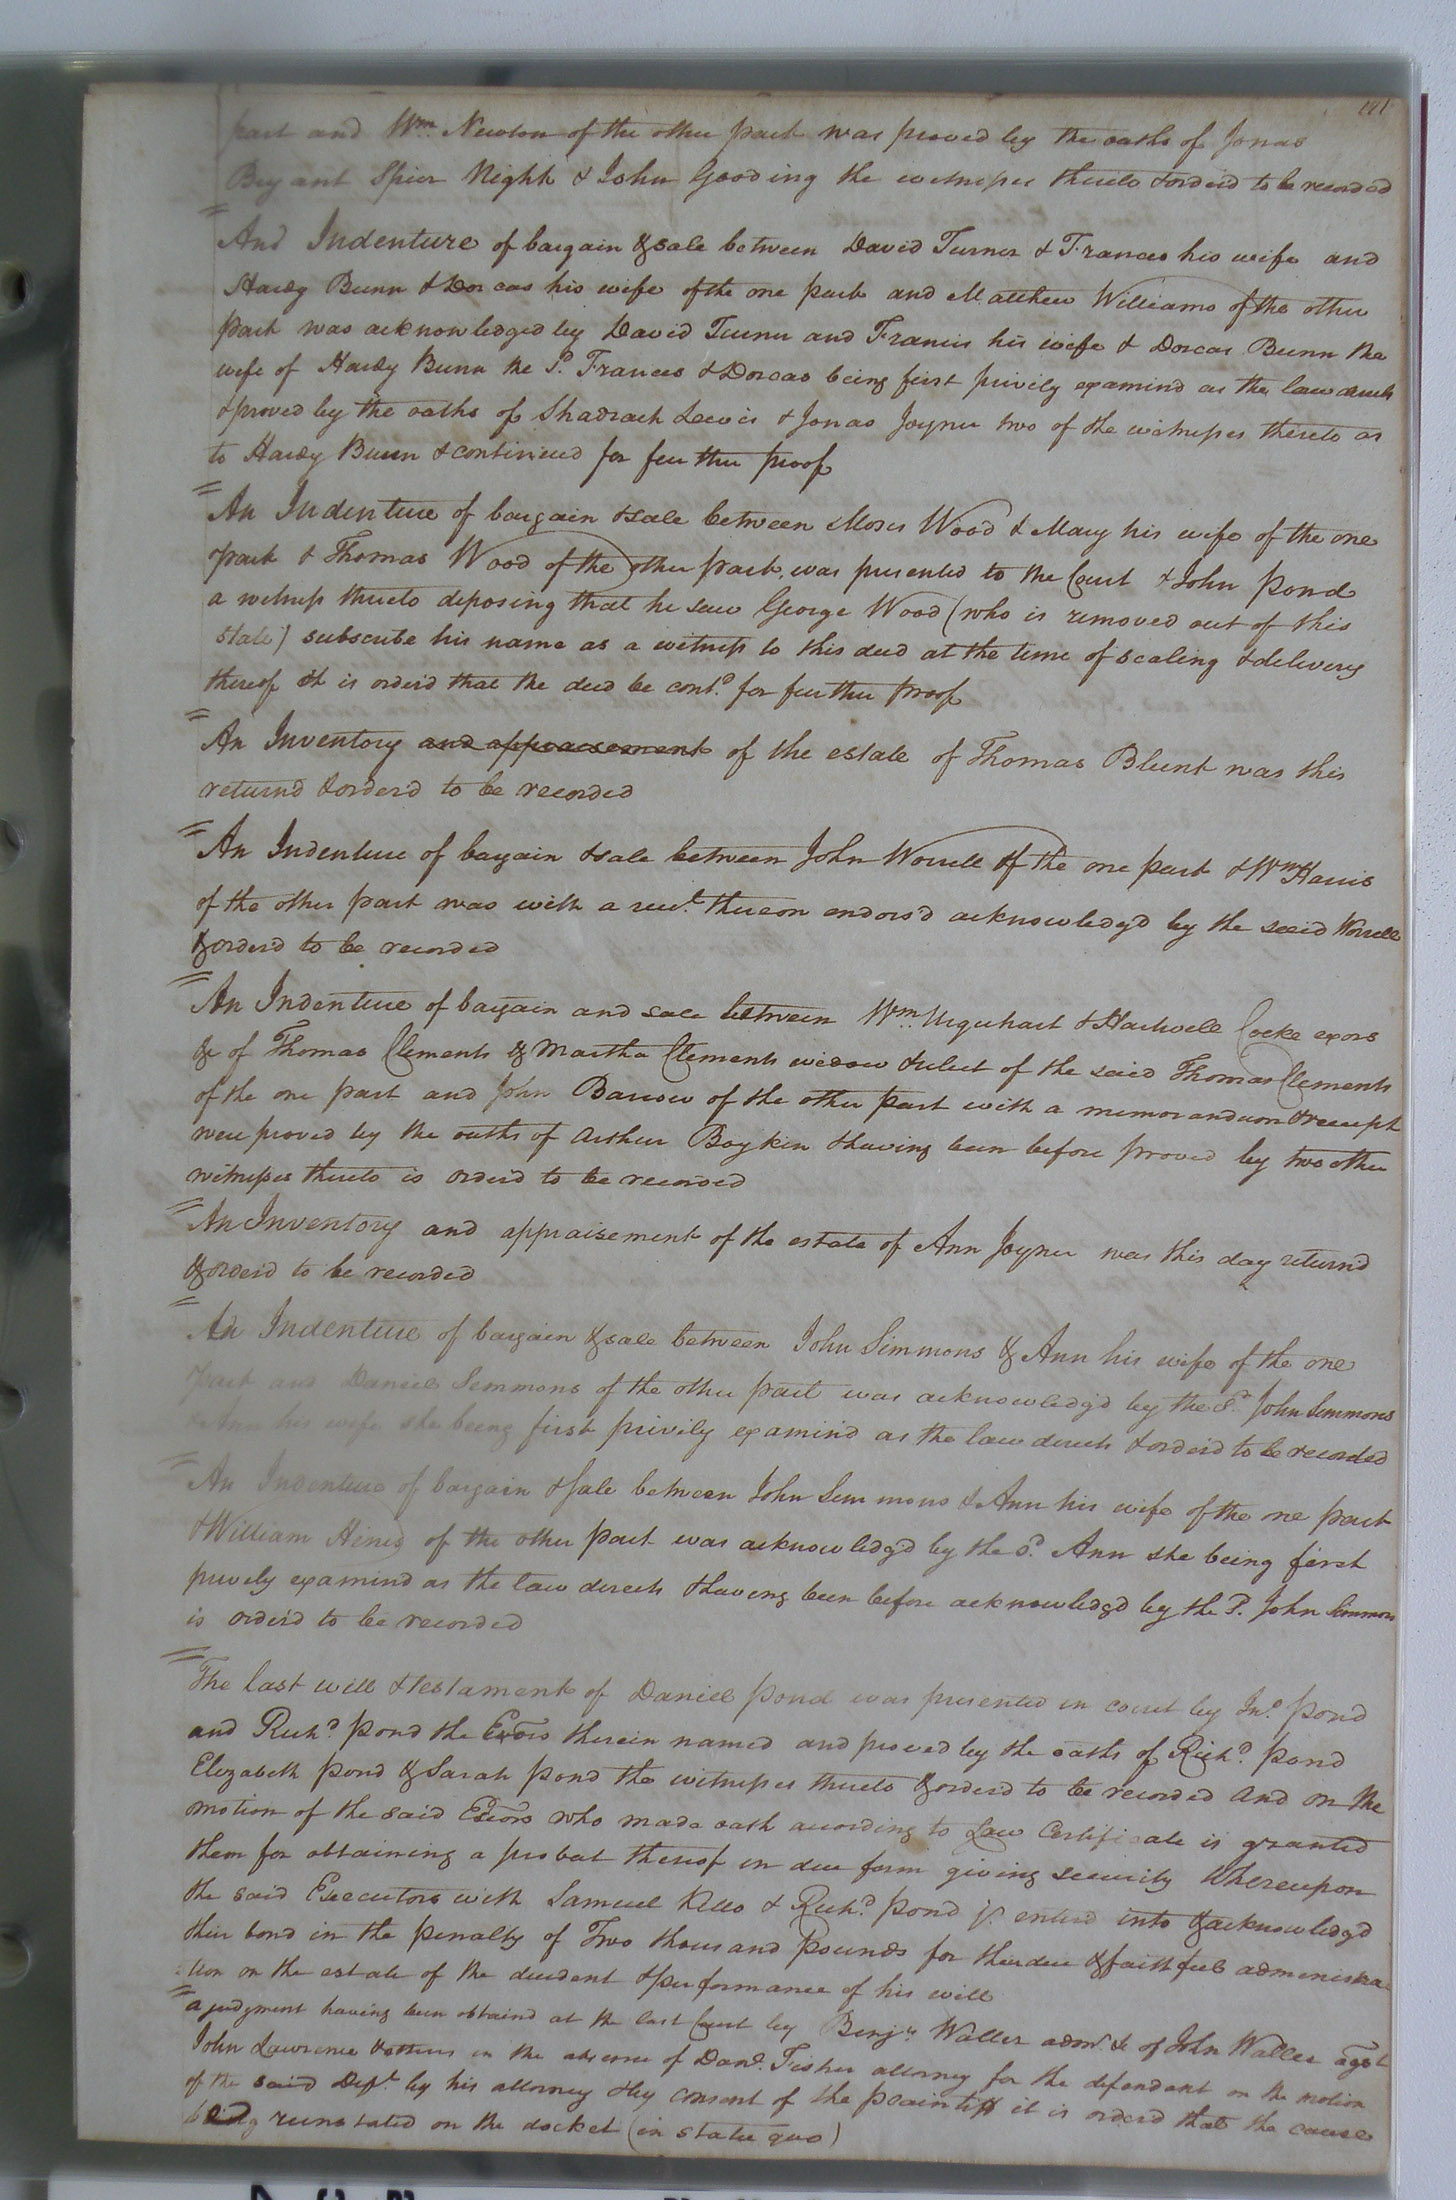 191
part and Wm. Newton of the other part was proved by the oaths of Jonas
Bryant Spier Night & John Gooding the witnesses thereto & orderd to be recorded
And Indenture of bargain & sale between David Turner & Frances his wife and
Hardy Bunn & Dorcas his wife of the one part and Matthew Williams of the other
part was acknowledged by David Turner and Francis his wife & Dorcas Bunn the
wife of Hardy Bunn the sd. Frances & Dorcas being first privily examind as the law directs
& proved by the oaths of Shadrach Lewis & Jonas Joyner two of the witnesses thereto as
to Hardy Bunn & continued for further proof
An Indenture of bargain & sale between Moses Wood & Mary his wife of the one
part & Thomas Wood of the other part, was presented to the Court & John Pond
a witness thereto deposing that he saw George Wood (who is removed out of this
State) subscribe his name as a witness to this deed at the time of sealing & delivery
thereof it is orderd that the deed be contd. for further proof
An Inventory and appraisement of the estate of Thomas Blunt was this
returnd & orderd to be recorded
An Indenture of bargain & sale between John Worrell of the one part & Wm Harris
of the other part was with a rect. thereon endors'd acknowledg'd by the said Worrell
& orderd to be recorded
An Indenture of bargain and sale between Wm. Urquhart & Hartwell Cocke exors
&c of Thomas Clements & Martha Clements widow & relict of the said Thomas Clements
of the one part and John Barrow of the other part with a memorandum & receipt
were proved by the oaths of Arthur Boykin & having been before proved by two other
witnesses thereto is orderd to be recorded
An Inventory and appraisement of the estate of Ann Joyner was this day return'd
& orderd to be recorded
An Indenture of bargain & sale between John Simmons & Ann his wife of the one
part and Daniel Simmons of the other part was acknowledg'd by the sd. John Simmons
& Ann his wife she being first privily examin'd as the law directs & orderd to be recorded
An Indenture of bargain & sale between John Simmons & Ann his wife of the one part
& William Hines of the other part was acknowledg'd by the sd. Ann she being first
privily examind as the law directs & having been before acknowledgd by the sd. John Simmons
is orderd to be recorded
The last will & testament of Daniel Pond was presented in court by Jno. Pond
and Richd. Pond the Exors therein named and proved by the oaths of Richd. Pond
Elizabeth Pond & Sarah Pond the witnesses thereto & orderd to be recorded And on the
motion of the said Exors who made oath according to Law Certificate is granted
them for obtaining a probat thereof in due form giving security Whereupon
the said Executors with Samuel Kello & Richd. Pond jr. enterd into & acknowledg'd
their bond in the penalty of Two thousand Pounds for their due & faithful administra
tion on the estate of the decedent & performance of his will
a judgment having been obtaind at the last Court by Benja. Waller admr. &c of John Waller agst
John Lawrence & others in the absence of Danl. Fisher attorney for the defendant on the motion
of the said Deft. by his attorney & by consent of the plaintiff it is orderd that the cause
reinstated on the docket (in statu quo)